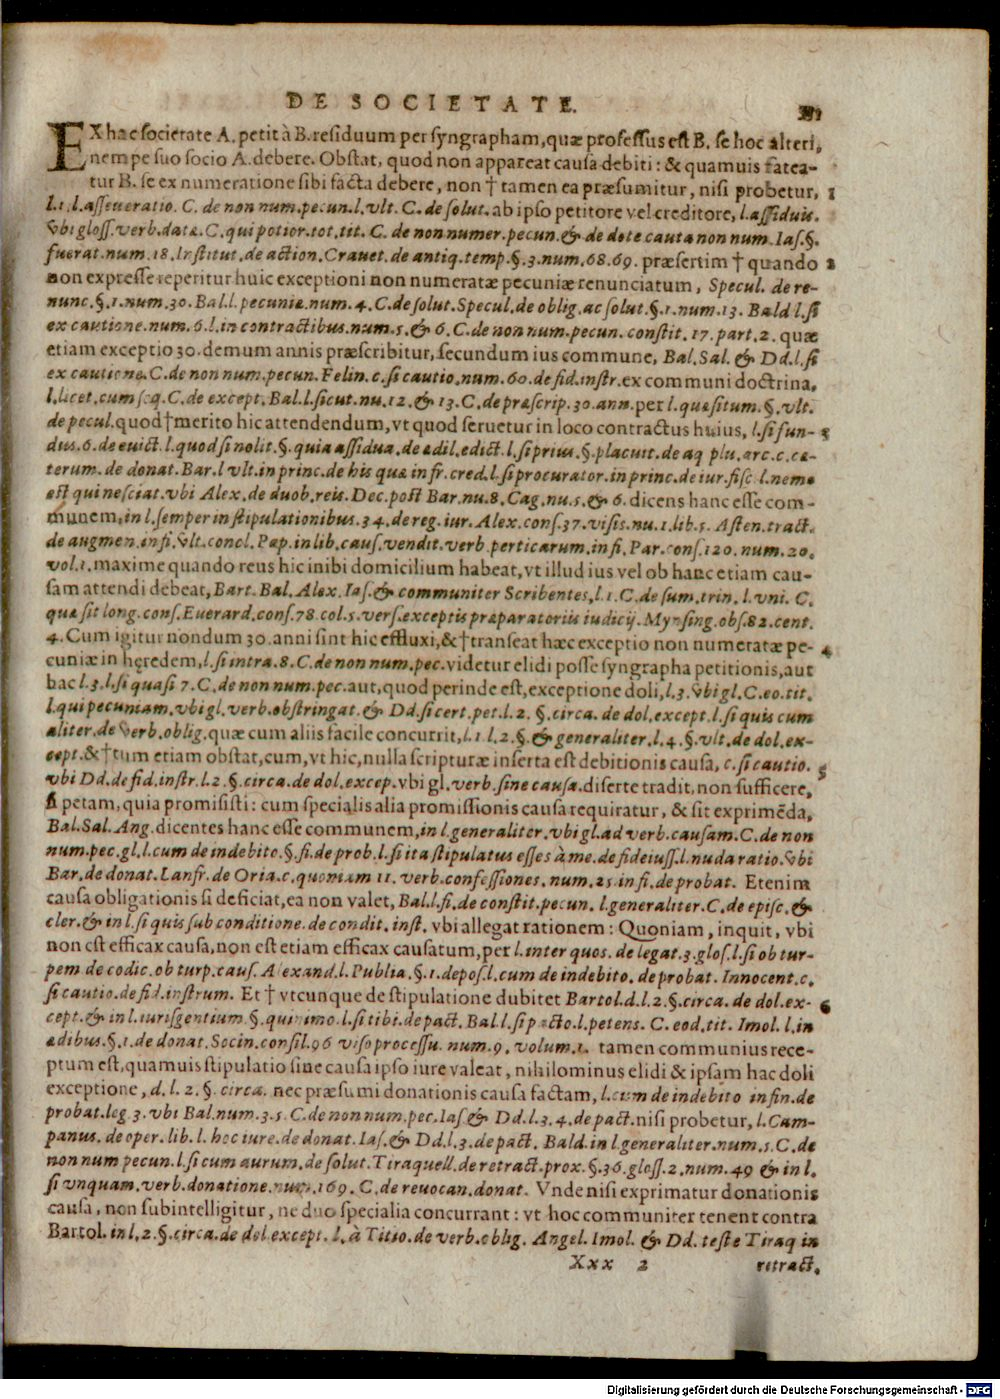 DE SOCIETATE.
EX hac societate A. petit à B. residuum per syngrapham, quæ professus est B. se hoc alteri,
nempe suo socio A. debere. Obstat, quod non appareat causa debiti: & quamuis fatea-
tur B. se ex numeratione sibi facta debere, non † tamen ea præsumitur, nisi probetur, 1
l. 1. l. asseueratio. C. de non num. pecun. l. vlt. C. de solut. ab ipso petitore vel creditore, l. assiduis.
vbi gloss. verb. data. C. qui potior. tot. tit. C. de non numer. pecun. & de dote cauta non num. Ias. §.
fuerat. num. 18. Institut. de action. Crauet. de antiq. temp. §. 3. num. 68. 69. præsertim † quando 2
non expresse reperitur huic exceptioni non numeratæ pecuniæ renunciatum, Specul. de re-
nunc. §. 1. num. 30. Bal. l. pecuniæ. num. 4. C. de solut. Specul. de oblig. ac solut. §. 1. num. 13. Bald. l. si
ex cautione. num. 6. l. in contractibus. num. 5. & 6. C. de non num. pecun. constit. 17. part. 2. quæ
etiam exceptio 30. demum annis præscribitur, secundum ius commune, Bal. Sal. & Dd. l. si
ex cautione. C. de non num. pecun. Felin. c. si cautio. num. 60. de fid. instr. ex communi doctrina,
l. licet. cum seq. C. de except. Bal. l. sicut. nu. 12. & 13. C. de præscrip. 30. ann. per l. quæsitum. §. vlt.
de pecul. quod † merito hic attendendum, vt quod seruetur in loco contractus huius, l. si fun- 3
dus. 6. de euict. l. quod si nolit. §. quia assidua. de ædil. edict. l. si prius. §. placuit. de aq plu. arc. c. cæ-
terum. de donat. Bar. l vlt. in princ. de his quæ in fr. cred. l. si procurator. in princ. de iur. fisc. l. nemo
est qui nesciat. vbi Alex. de duob. reis. Dec. post Bar. nu. 8. Cag. nu. 5. & 6. dicens hanc esse com-
munem, in l. semper in stipulationibus. 34. de reg. iur. Alex. cons. 37. visis. nu. 1. lib. 5. Asten. tract.
de augmen. in fi. vlt. concl. Pap. in lib. caus. vendit. verb perticarum. in fi. Par. cons. 120. num. 20.
vol. 1. maxime quando reus hic inibi domicilium habeat, vt illud ius vel ob hanc etiam cau-
sam attendi debeat, Bart. Bal. Alex. Ias. & communiter Scribentes, l. 1. C. de sum. trin. l. vni. C.
quæ sit long. cons. Euerard. cons. 78. col. 5. vers. exceptis præparatoriis iudicij. Mynsing. obs. 82. cent.
4. Cum igitur nondum 30. anni sint hic effluxi, & † transeat hæc exceptio non numeratæ pe- 4
cuniæ in hęredem, l. si intra. 8. C. de non num. pec. videtur elidi posse syngrapha petitionis, aut
hac l. 3. l. si quasi 7. C. de non num. pec. aut, quod perinde est, exceptione doli, l. 3. vbi gl. C. eo. tit.
l. qui pecuniam. vbi gl. verb. obstringat. & Dd. si cert. pet. l. 2. §. circa. de dol. except. l. si quis cum
aliter. de verb. oblig. quæ cum aliis facile concurrit, l. 1. l. 2. §. & generaliter. l. 4. §. vlt. de dol. ex-
cept. & † tum etiam obstat, cum, vt hic, nulla scripturæ inserta est debitionis causa, c. si cautio. 5
vbi Dd. de fid. instr. l. 2. §. circa. de dol. excep. vbi gl. verb. sine causa. diserte tradit, non sufficere,
si petam, quia promisisti: cum specialis alia promissionis causa requiratur, & sit exprimẽda,
Bal. Sal. Ang. dicentes hanc esse communem, in l. generaliter. vbi gl. ad verb. causam. C. de non
num. pec. gl. l. cum de indebito. §. fi. de prob. l. si ita stipulatus esses à me. de fideiuss. l. nuda ratio. vbi
Bar. de donat. Lanfr. de Oria. c. quoniam 11. verb. confessiones. num. 25. in fi. de probat. Etenim
causa obligationis si deficiat, ea non valet, Bal. l. fi. de constit. pecun. l. generaliter. C. de episc. &
cler. & in l. si quis sub conditione. de condit. inst. vbi allegat rationem: Quoniam, inquit, vbi
non est efficax causa, non est etiam efficax causatum, per l. inter quos. de legat. 3. glos. l. si ob tur-
pem de codic. ob turp. caus. Alexand. l. Publia. §. 1. depos. l. cum de indebito. de probat. Innocent. c.
si cautio. de fid. instrum. Et † vtcunque de stipulatione dubitet Bartol. d. l. 2. §. circa. de dol. ex- 6
cept. & in l. iurisgentium. §. quinimo. l. si tibi. de pact. Bal. l. si pacto. l. petens. C. eod. tit. Imol. l. in
ædibus. §. 1. de donat. Socin. consil. 96 viso processu. num. 9. volum. 1. tamen communius rece-
ptum est, quamuis stipulatio sine causa ipso iure valeat, nihilominus elidi & ipsam hac doli
exceptione, d. l. 2. §. circa. nec præsumi donationis causa factam, l. cum de indebito in fin. de
probat. leg. 3. vbi Bal. num. 3. 5. C. de non num. pec. Ias. & Dd. l. 3. 4. de pact. nisi probetur, l. Cam-
panus. de oper. lib. l. hoc iure. de donat. Ias. & Dd. l. 3. de pact. Bald. in l. generaliter. num. 5. C. de
non num pecun. l. si cum aurum. de solut. Tiraquell. de retract. prox. §. 36. gloss. 2. num. 49 & in l.
si vnquam. verb. donatione. num. 169. C. de reuocan. donat. Vnde nisi exprimatur donationis
causa, non subintelligitur, ne duo specialia concurrant: vt hoc communiter tenent contra
Bartol. in l. 2. §. circa. de dol except. l. à Titio. de verb. oblig. Angel. Imol. & Dd. teste Tiraq in
Xxx 2 retract.
Digitalisierung gefördert durch die Deutsche Forschungsgemeinschaft - DFG